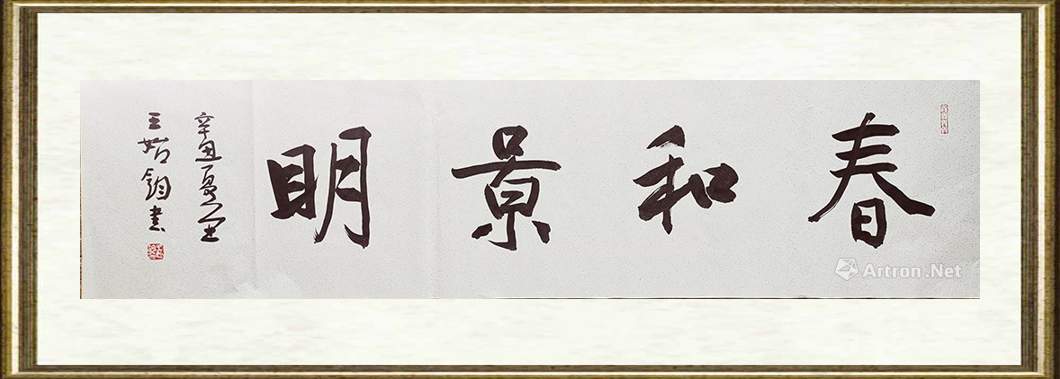 春和景明
辛丑夏至
王始钧书
Artron.Net